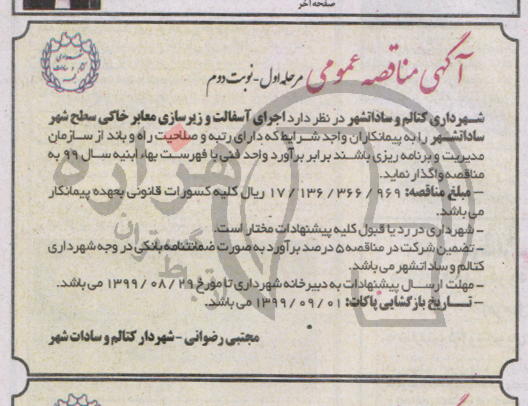 صفحه آخر
آگهی مناقصه عمومی مرحله اول - نوبت دوم
شهرداری کتالم و ساداتشهر در نظر دارد اجرای آسفالت و زیرسازی معابر خاکی سطح شهر
ساداتشهر را به پیمانکاران واجد شرایط که دارای رتبه و صلاحیت راه و باند از سازمان
مدیریت و برنامه ریزی باشند برابر برآورد واحد فنی با فهرست بهاء ابنیه سال ۹۹ به
مناقصه واگذار نماید.
– مبلغ مناقصه: ۱۷/۱۳۶/۳۶۶/۹۶۹ ریال کلیه کسورات قانونی بعهده پیمانکار
می باشد.
– شهرداری در رد یا قبول کلیه پیشنهادات مختار است.
– تضمین شرکت در مناقصه ۵ درصد برآورد به صورت ضمانتنامه بانکی در وجه شهرداری
کتالم و ساداتشهر می باشد.
– مهلت ارسال پیشنهادات به دبیرخانه شهرداری تا مورخ ۱۳۹۹/۰۸/۲۹ می باشد.
– تاریخ بازگشایی پاکات: ۱۳۹۹/۰۹/۰۱ می باشد.
مجتبی رضوانی - شهردار کتالم و سادات شهر
هزاره